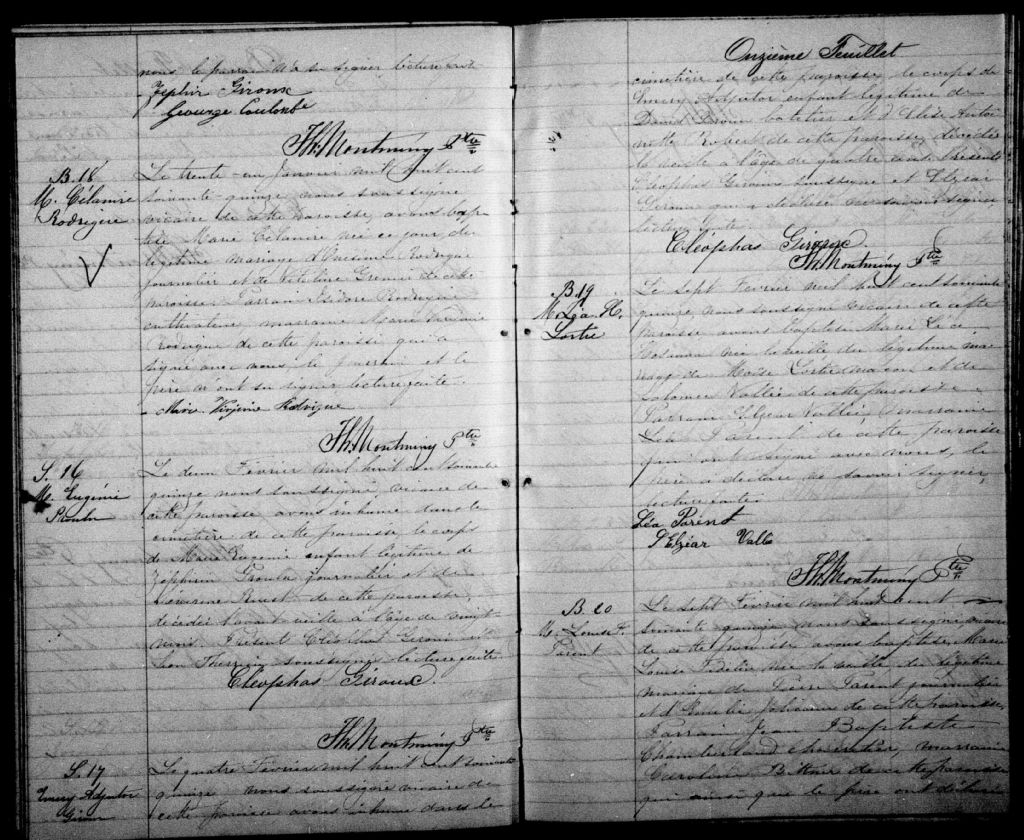 nous le parrain n'a su signer lecture
Zephir Giroux
George Coulombe
Th. Montminy Ptre
B. 18
M. Célamire
Rodrigue
Le trente-un Janvier mil huit cent
soixante-quinze, nous soussigné
vicaire de cette Paroisse, avons bap-
tisé Marie Célamire née ce jour, du
légitime mariage d' Rodrigue
journalier et de Grenier de cette
paroisse. Parrain Isidore Rodrigue
cultivateur, marraine Marie
Rodrigue de cette paroisse qui a
signé avec nous, le parrain et le
père n'ont su signer lecture faite
Marie Virginie Rodrigue
Th. Montminy Ptre
S. 16
M. Eugénie
Le deux Février mil huit cent soixante
quinze nous soussigné, vicaire de
cette paroisse avons inhumé dans le
cimetière de cette paroisse, le corps
de Marie Eugenie enfant légitime de
Zephirin journalier et de
de cette paroisse,
décédée l'avant-veille à l'âge de vingt
mois. Présent Cléophas Giroux et
Therrien soussigné lecture faite
Cléophas Giroux
Th. Montminy Ptre
S. 17
Emery Adjutor
Le quatre Février mil huit cent soixante
quinze nous soussigné vicaire de
cette paroisse avons inhumé dans le
Onzième Feuillet
cimetière de cette paroisse, le corps de
Emery Adjutor enfant légitime de
David batelier et d'Elise
Robert de cette paroisse, décédé
à l'âge de quatre ans. Présents
Cléophas Giroux soussigné et Elzear
qui a déclaré ne savoir signer
lecture faite
Cléophas Giroux
Th. Montminy Ptre
B. 19
M. Léa R.
Lortie
Le sept Février mil huit cent soixante
quinze, nous soussigné vicaire de cette
paroisse avons baptisé Marie Léa
née la veille du légitime ma-
riage de Moïse Lortie maçon et de
Salomée Vallée de cette paroisse
Parrain Elzear Vallée, marraine
Léa Parent de cette paroisse
qui ont signé avec nous, le
père a déclaré ne savoir signer,
lecture faite
Léa Parent
Elzéar Vallé
Th. Montminy Ptre
B. 20
M. Louise F.
Parent
Le sept Février mil huit cent
soixante quinze nous soussigné vicaire
de cette paroisse avons baptisé Marie
Louise née la veille, du légitime
mariage de Pierre Parent journalier
et d' de cette paroisse,
Parrain Jean Baptiste
Chamberland charretier, marraine
Caroline de cette paroisse
qui ainsi que le père ont déclaré